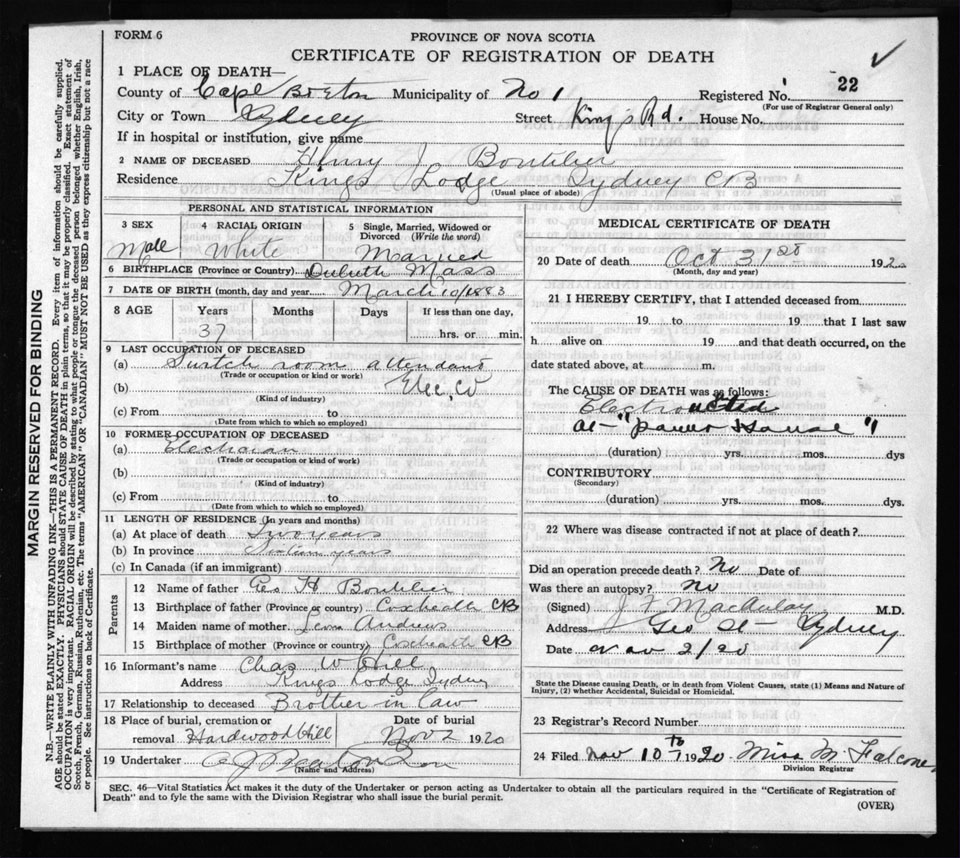 FORM 6
PROVINCE OF NOVA SCOTIA
CERTIFICATE OF REGISTRATION OF DEATH
MARGIN RESERVED FOR BINDING
N.B.—WRITE PLAINLY WITH UNFADING INK—THIS IS A PERMANENT RECORD. Every item of information should be carefully supplied.
AGE should be stated EXACTLY. PHYSICIANS should STATE CAUSE OF DEATH in plain terms, so that it may be properly classified. Exact statement of
OCCUPATION is very important. RACIAL ORIGIN will be described by stating to what people or tongue the deceased person belonged whether English, Irish,
Scotch, French, German, Russian, Ruthenian, etc. The terms "AMERICAN" OR "CANADIAN" MUST NOT BE USED as they express citizenship but not a race
or people. See instructions on back of Certificate.
1 PLACE OF DEATH—
County of Cape Breton Municipality of No 1 Registered No. 22
(For use of Registrar General only)
City or Town Sydney Street King's Rd. House No.
If in hospital or institution, give name
2 NAME OF DECEASED Henry J Boutilier
Residence Kings Lodge Sydney CB
(Usual place of abode)
PERSONAL AND STATISTICAL INFORMATION
3 SEX 4 RACIAL ORIGIN 5 Single, Married, Widowed or
Divorced (Write the word)
Male White Married
6 BIRTHPLACE (Province or Country) Duluth Mass
7 DATE OF BIRTH (month, day and year) March 10/1883
8 AGE Years Months Days If less than one day,
37 hrs. or min.
9 LAST OCCUPATION OF DECEASED
(a) Switch room attendant
(Trade or occupation or kind or work)
(b) Elec, Co
(Kind of industry)
(c) From to
(Date from which to which so employed)
10 FORMER OCCUPATION OF DECEASED
(a) Electician
(Trade or occupation or kind of work)
(b)
(Kind of industry)
(c) From to
(Date from which to which so employed)
11 LENGTH OF RESIDENCE (In years and months)
(a) At place of death Two years
(b) In province Sixteen years
(c) In Canada (if an immigrant)
Parents
12 Name of father Geo H Boutilier
13 Birthplace of father (Province or country) Coxheath CB
14 Maiden name of mother. Andrews
15 Birthplace of mother (Province or country) Coxheath CB
16 Informant's name Chas W Hill
Address Kings Lodge Sydney
17 Relationship to deceased Brother in Law
18 Place of burial, cremation or Date of burial
removal Hardwood Hill Nov 2 1920
19 Undertaker Son
(Name and Address)
MEDICAL CERTIFICATE OF DEATH
20 Date of death Oct 31 20 192
(Month, day and year)
21 I HEREBY CERTIFY, that I attended deceased from
19 to 19 that I last saw
h alive on 19 and that death occurred, on the
date stated above, at m.
The CAUSE OF DEATH was as follows:
Electrocuted
at "power House"
(duration) yrs. mos. dys
CONTRIBUTORY
(Secondary)
(duration) yrs. mos. dys.
22 Where was disease contracted if not at place of death?
Did an operation precede death? No Date of
Was there an autopsy? No
(Signed) MacAulay M.D.
Address Geo St— Sydney
Date Nov 2/20
State the Disease causing Death, or in death from Violent Causes, state (1) Means and Nature of
Injury, (2) whether Accidental, Suicidal or Homicidal.
23 Registrar's Record Number
24 Filed Nov 10th 1920. Miss M. Falconer
Division Registrar
SEC. 46—Vital Statistics Act makes it the duty of the Undertaker or person acting as Undertaker to obtain all the particulars required in the "Certificate of Registration of
Death" and to fyle the same with the Division Registrar who shall issue the burial permit.
(OVER)